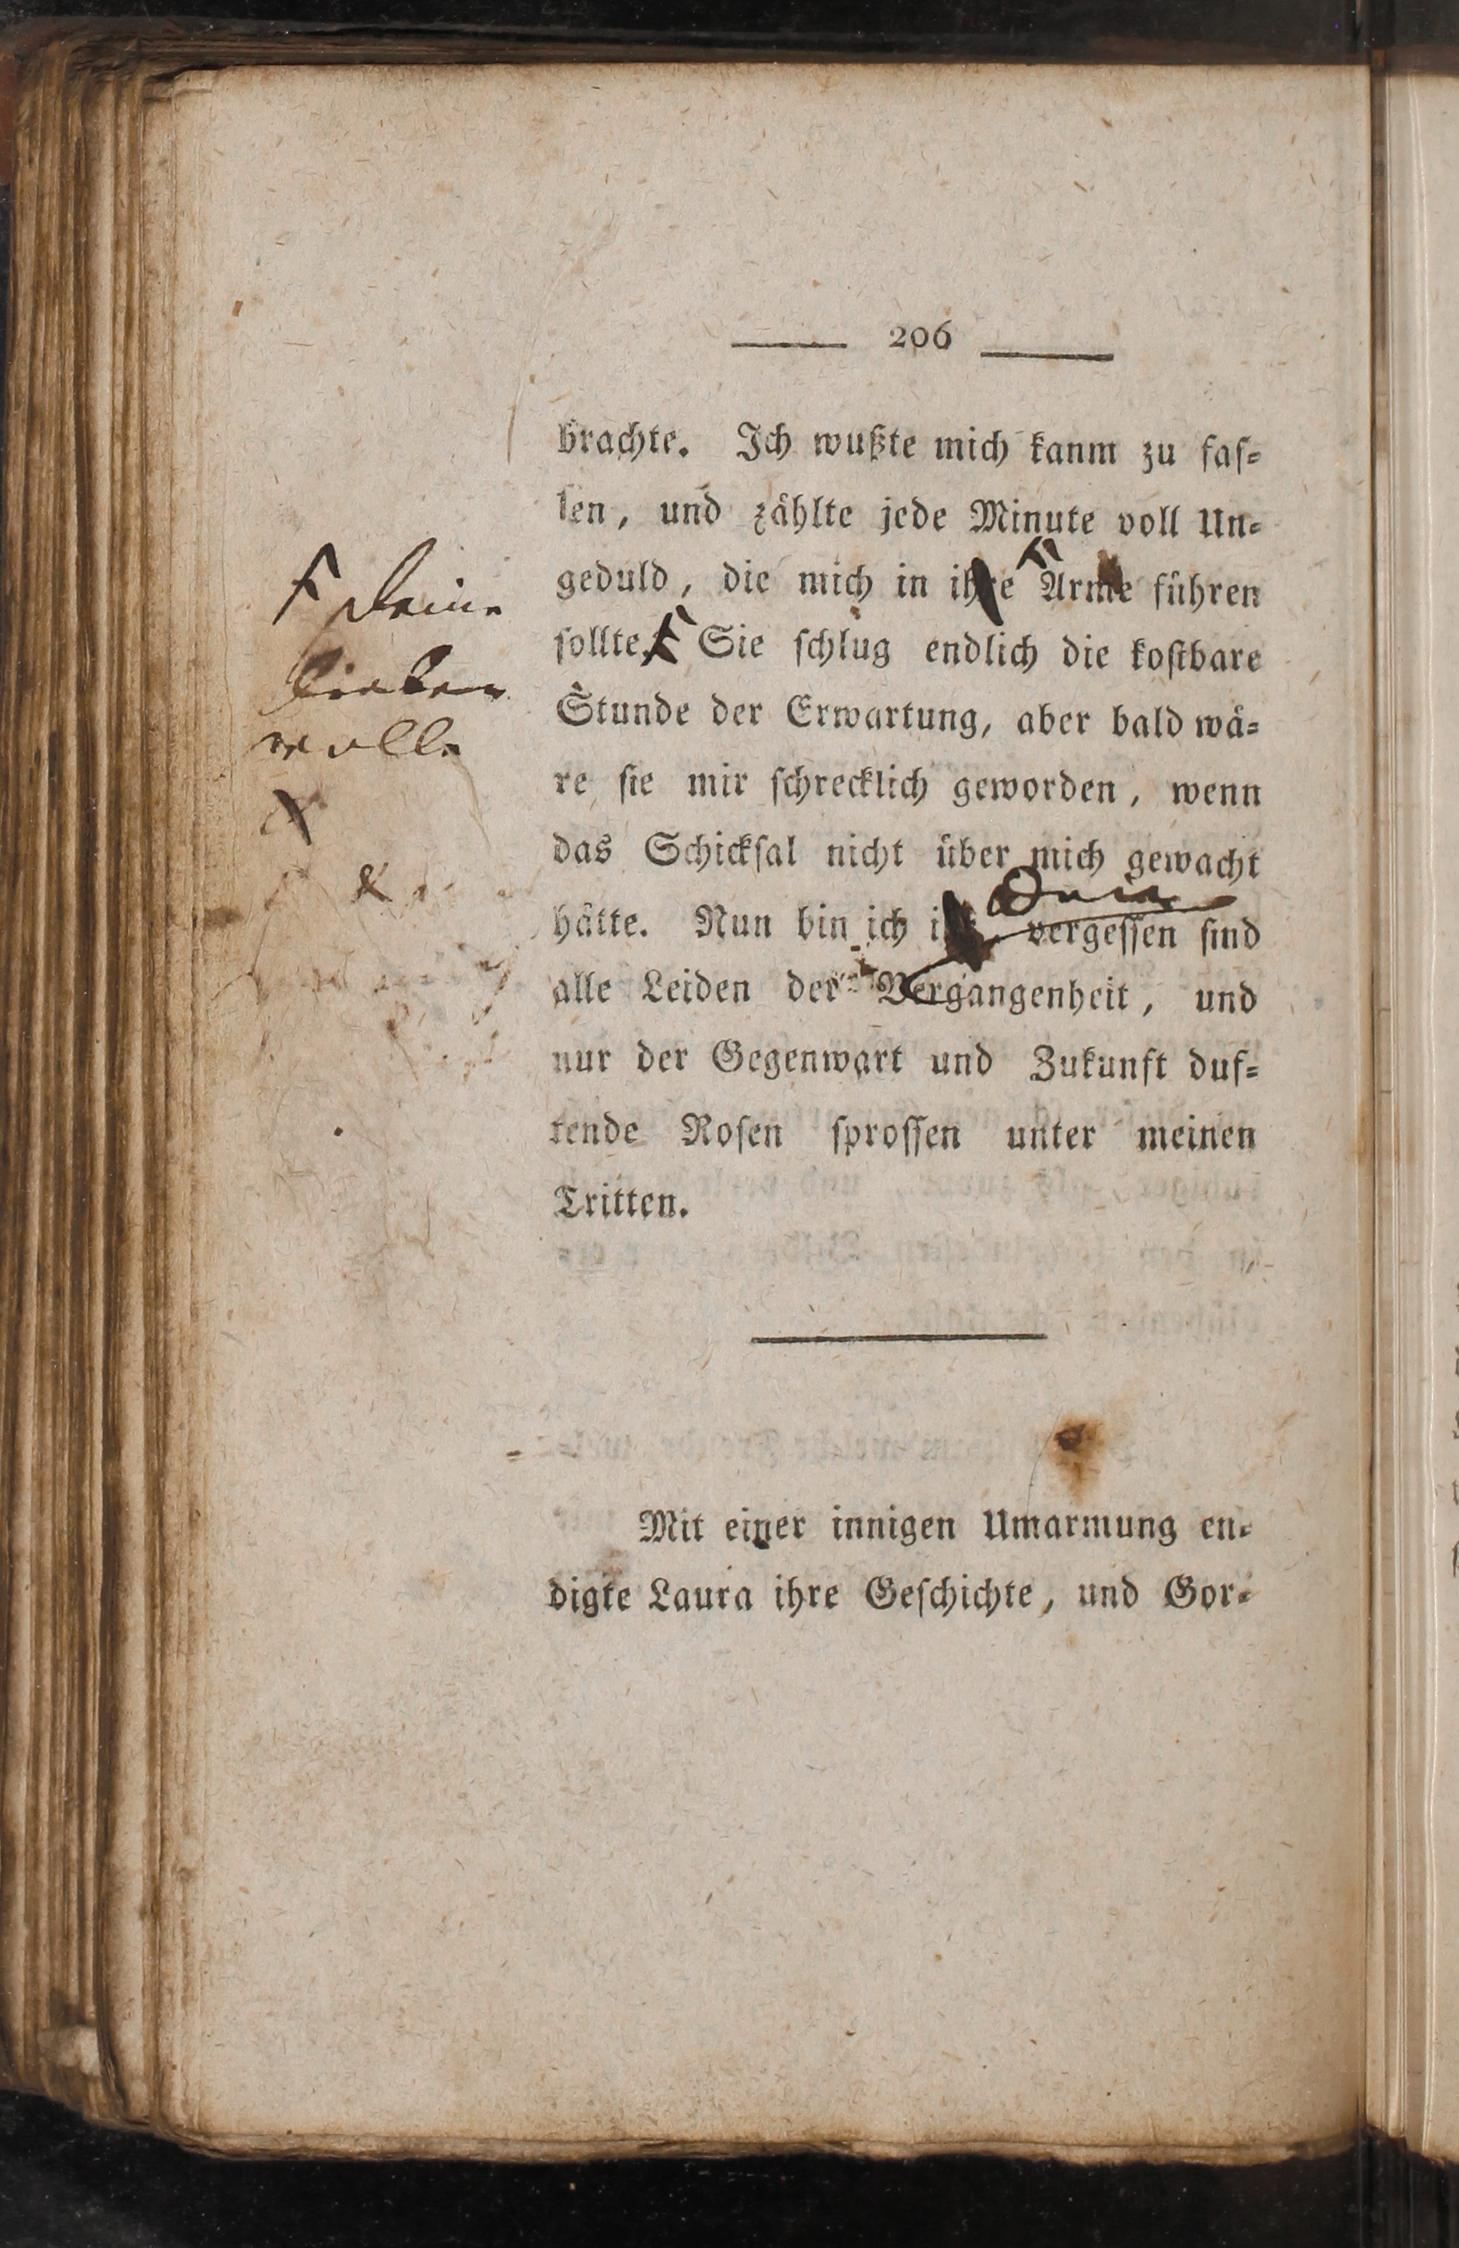 206
brachte. Ich wußte mich kanm zu faſ⸗
ſen, und zählte jede Minute voll Un⸗
geduld, die mich in ihre Arme führen
ſollte. Sie ſchlug endlich die koſtbare
Stunde der Erwartung, aber bald wä⸗
re ſie mir ſchrecklich geworden, wenn
das Schickſal nicht über mich gewacht
hätte. Nun bin ich vergeſſen ſind
alle Leiden der Vergangenheit, und
nur der Gegenwart und Zukunft duf⸗
tende Roſen ſproſſen unter meinen
Tritten.
Mit einer innigen Umarmung en⸗
digte Laura ihre Geſchichte, und Gor⸗
Deine